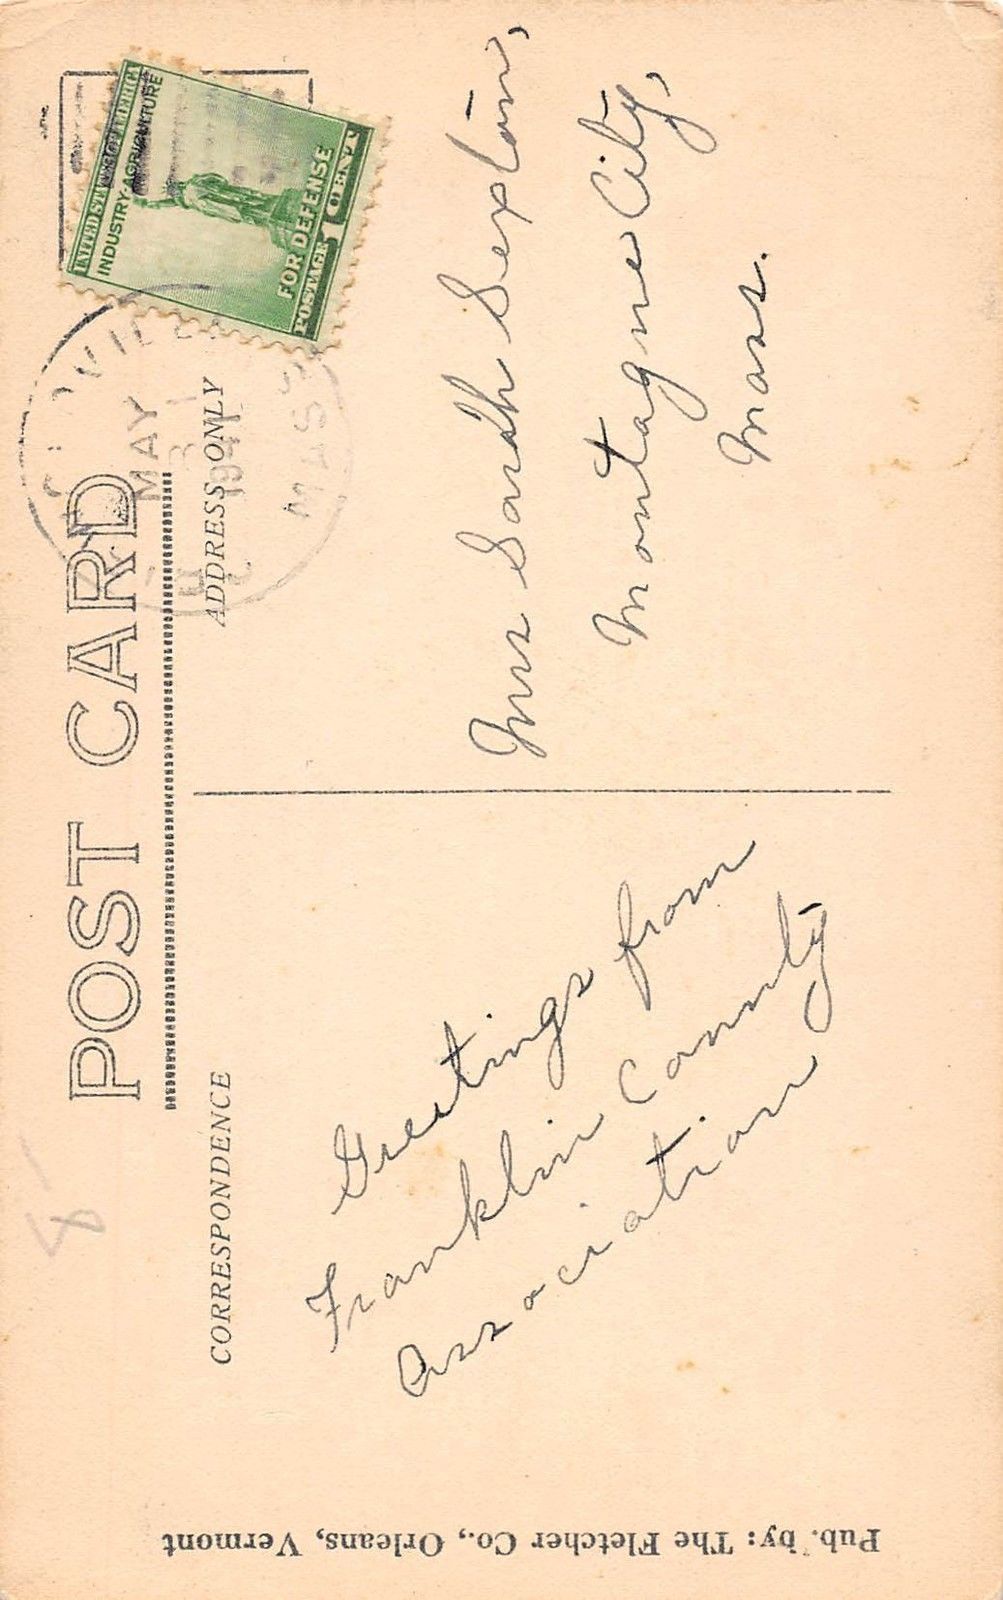 POST CARD
CORRESPONDENCE
ADDRESS ONLY
UNITED STATES OF AMERICA
INDUSTRY-AGRICULTURE
FOR DEFENSE
POSTAGE 1 CENT
MAY
31
1941
MASS
Greetings from
Franklin County
Association
Mrs Sarah Sexton,
Montague City,
Mass.
Pub. by: The Fletcher Co., Orleans, Vermont